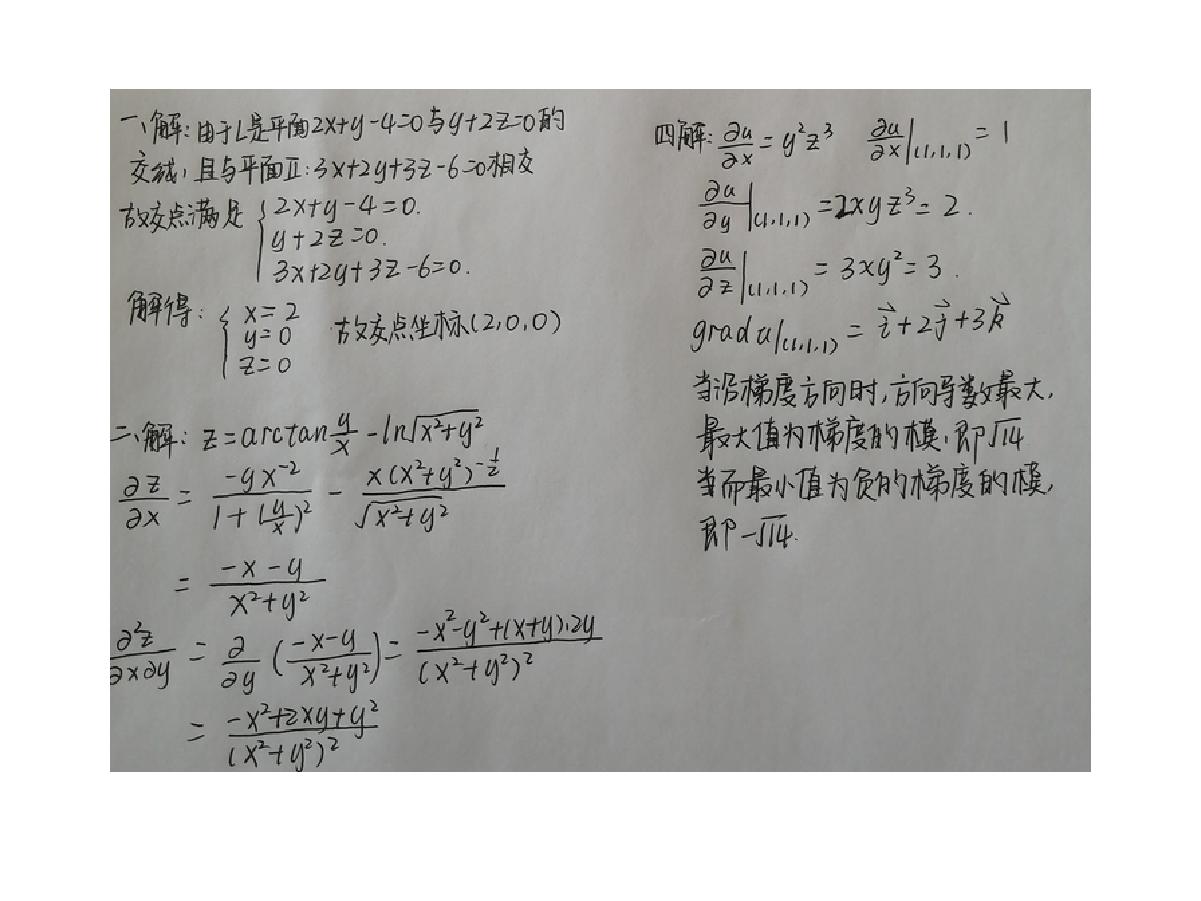 一、解：由于L是平面2x+y-4=0与y+2z=0的
交线，且与平面Π：3x+2y+3z-6=0相交
故交点满足 { 2x+y-4=0.
y+2z=0.
3x+2y+3z-6=0.
解得： { x=2
y=0 故交点坐标(2,0,0)
z=0
二、解：z=arctan y/x - ln√(x²+y²)
∂z/∂x = (-yx⁻²)/(1+(y/x)²) - (x(x²+y²)^(-1/2))/√(x²+y²)
= (-x-y)/(x²+y²)
∂²z/∂x∂y = ∂/∂y ((-x-y)/(x²+y²)) = (-x²-y²+(x+y)·2y)/(x²+y²)²
= (-x²+2xy+y²)/(x²+y²)²
四解：∂u/∂x = y²z³ ∂u/∂x|(1,1,1) = 1
∂u/∂y|(1,1,1) = 2xyz³ = 2.
∂u/∂z|(1,1,1) = 3xy² = 3.
gradu|(1,1,1) = i⃗+2j⃗+3k⃗
当沿梯度方向时，方向导数最大，
最大值为梯度的模，即√14
当而最小值为负的梯度的模，
即-√14.